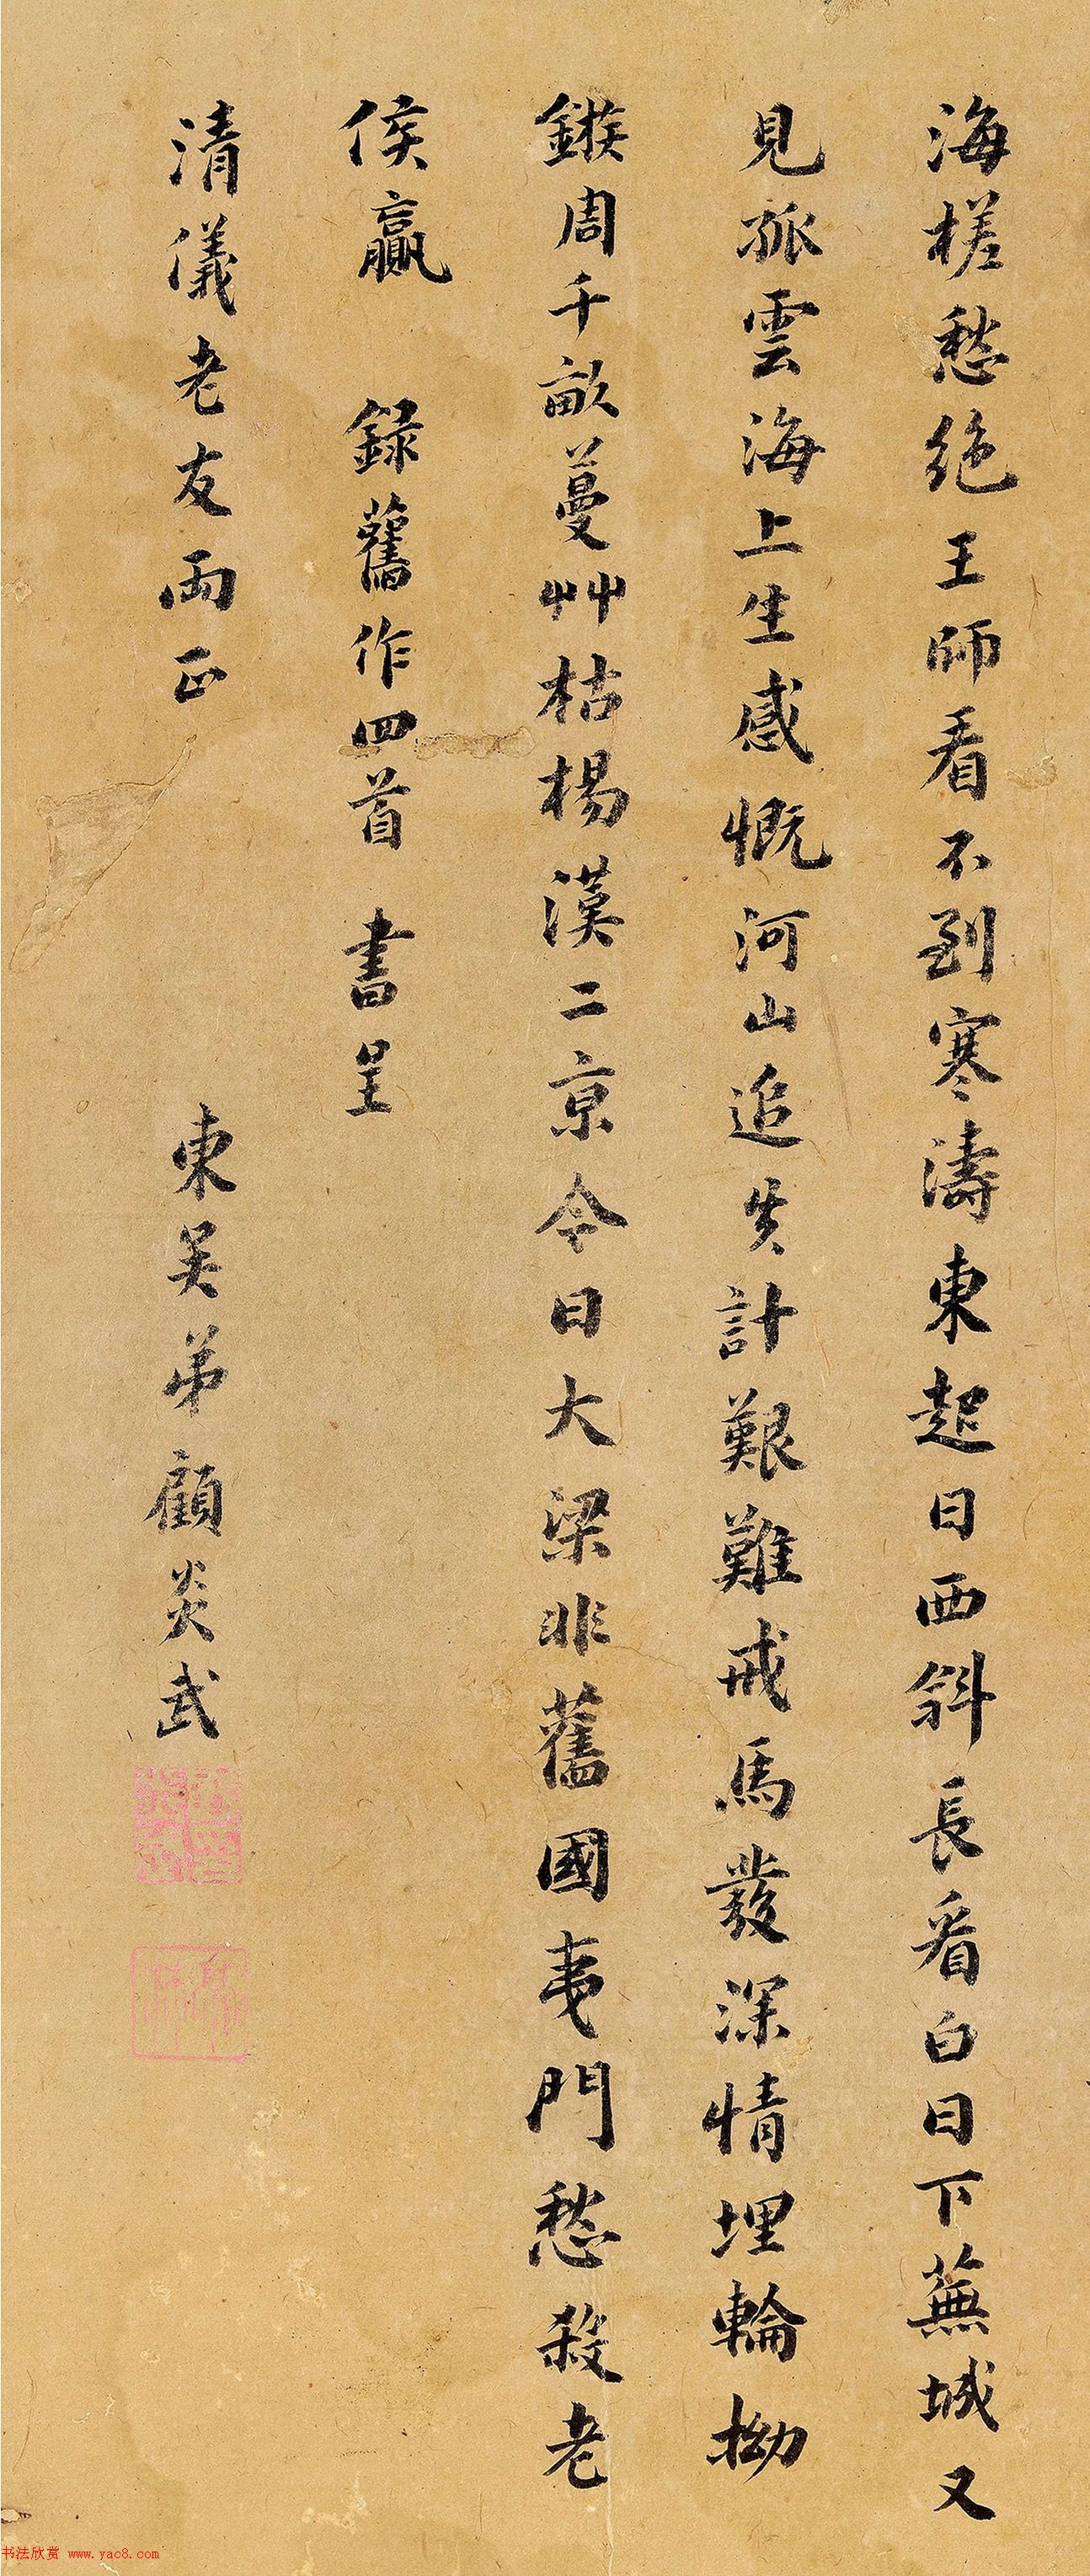 海槎愁絶王師看不到寒濤東起日西斜長看白日下蕪城又
見孤雲海上生感慨河山追失計艱難戒馬發深情埋輪拗
鏃周千畝蔓艸枯楊漢二京令日大梁非舊國夷門愁殺老
侯贏　錄舊作四首　書呈
清儀老友兩正
東吴弟顧炎武
书法欣赏 www.yac8.com